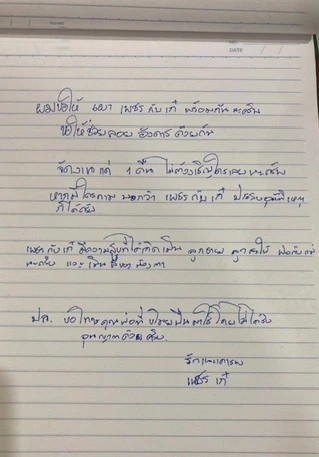 ผมขอให้ เผา เพชร กับ เก๋ พร้อมกัน นะครับ
ขอให้ช่วยลอย อังคาร ด้วยกัน
จัดงานแค่ 1 คืน ไม่ต้องเชิญใครเลยนะครับ
หากมีใครถาม บอกว่า เพชร กับ เก๋ ประสบอุบัติเหตุ
ก็ได้ครับ
เพชร กับ เก๋ มีความสุขที่ได้เกิดเป็น ลูกชาย ลูกสะใภ้ พ่อกับแม่
นะครับ และ เป็น
ปล. ขอโทษคุณพ่อที่ ขโมยปืนมาใช้ โดยไม่ได้รับ
อนุญาตด้วยครับ.
รักและเคารพ
เพชร เก๋